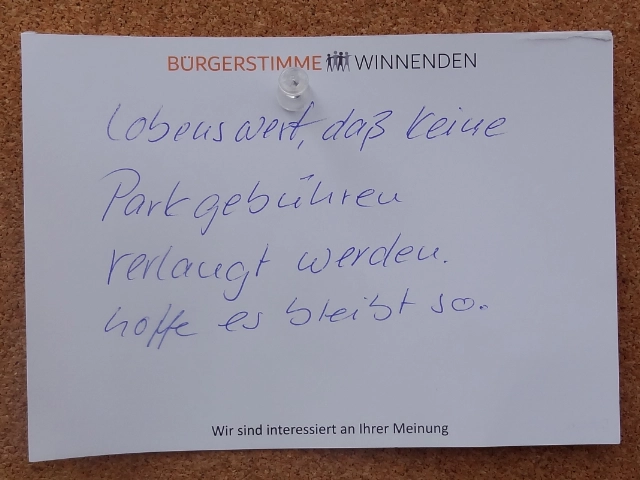 BÜRGERSTIMME WINNENDEN
Lobenswert, daß keine
Parkgebühren
verlangt werden.
hoffe es bleibt so.
Wir sind interessiert an Ihrer Meinung